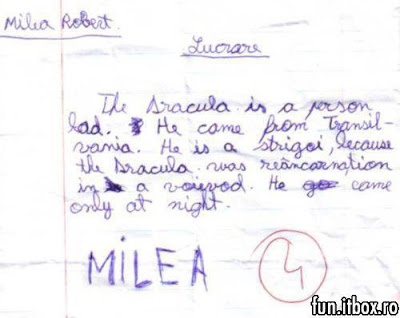 Milea Robert
Lucrare
The Dracula is a person
bad. He came from Transil-
vania. He is a strigoi, because
the Dracula was reâncarnation
in a voievod. He came
only at night.
MILEA
4
fun.itbox.ro